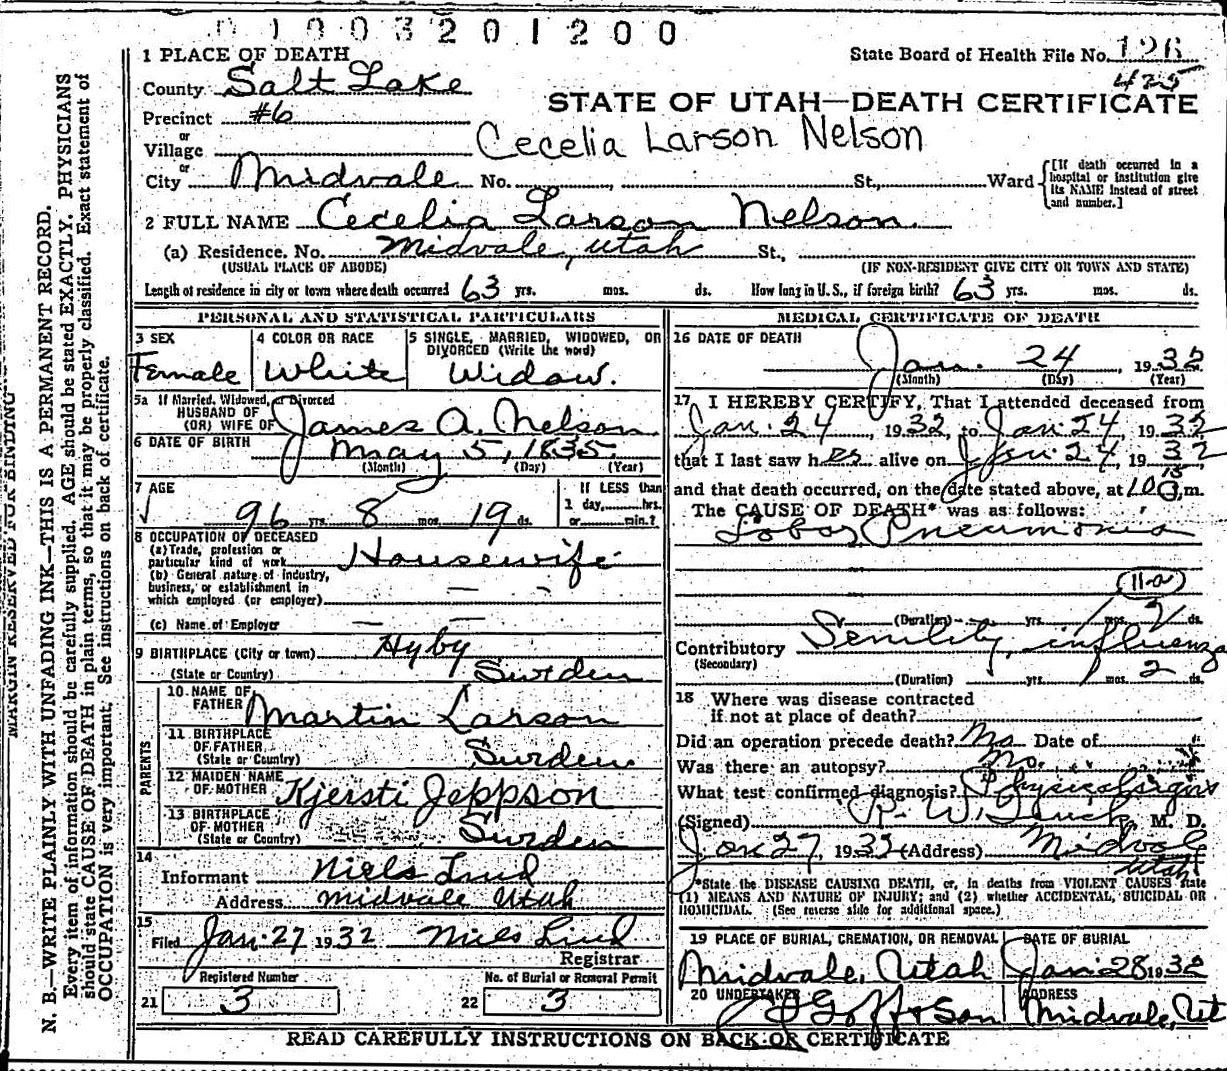 0 1 0 0 3 2 0 1 2 0 0
1 PLACE OF DEATH
State Board of Health File No. 126
425
County Salt Lake
STATE OF UTAH—DEATH CERTIFICATE
Precinct #6
or
Village
Cecelia Larson Nelson
or
City Midvale No. , St., Ward
[If death occurred in a hospital or institution give its NAME instead of street and number.]
2 FULL NAME Cecelia Larson Nelson.
(a) Residence. No. Midvale, Utah St.,
(USUAL PLACE OF ABODE) (IF NON-RESIDENT GIVE CITY OR TOWN AND STATE)
Length of residence in city or town where death occurred 63 yrs. mos. ds. How long in U.S., if foreign birth? 63 yrs. mos. ds.
PERSONAL AND STATISTICAL PARTICULARS
3 SEX
Female
4 COLOR OR RACE
White
5 SINGLE, MARRIED, WIDOWED, OR DIVORCED (Write the word)
Widow.
5a If Married, Widowed, or Divorced
HUSBAND OF
(OR) WIFE OF James A. Nelson
6 DATE OF BIRTH May 5, 1835
(Month) (Day) (Year)
7 AGE
96 yrs. 8 mos. 19 ds.
If LESS than
1 day, hrs.
or min.?
8 OCCUPATION OF DECEASED
(a) Trade, profession or
particular kind of work Housewife
(b) General nature of industry,
business, or establishment in
which employed (or employer)
(c) Name of Employer
9 BIRTHPLACE (City or town) Hyby
(State or Country) Sweden
PARENTS
10 NAME OF
FATHER Martin Larson
11 BIRTHPLACE
OF FATHER
(State or Country) Sweden
12 MAIDEN NAME
OF MOTHER Kjersti Jeppson
13 BIRTHPLACE
OF MOTHER
(State or Country) Sweden
14
Informant Niels Lind
Address Midvale Utah
15
Filed Jan. 27 1932 Niels Lind
Registrar
Registered Number
21 3
No. of Burial or Removal Permit
22 3
MEDICAL CERTIFICATE OF DEATH
16 DATE OF DEATH
Jan. 24, 1932
(Month) (Day) (Year)
17 I HEREBY CERTIFY, That I attended deceased from
Jan. 24, 1932, to Jan. 24, 1932
that I last saw her alive on Jan. 24, 1932
and that death occurred, on the date stated above, at m.
The CAUSE OF DEATH* was as follows:
Lobar Pneumonia
(11-a)
(Duration) yrs. mos. 2 ds.
Contributory Senility, influenza
(Secondary)
(Duration) yrs. mos. 2 ds.
18 Where was disease contracted
if not at place of death?
Did an operation precede death? No Date of
Was there an autopsy? No.
What test confirmed diagnosis? Physical signs
(Signed) R. W. M. D.
Jan 27, 1932 (Address) Midvale
Utah
*State the DISEASE CAUSING DEATH, or, in deaths from VIOLENT CAUSES state
(1) MEANS AND NATURE OF INJURY; and (2) whether ACCIDENTAL, SUICIDAL OR
HOMICIDAL. (See reverse side for additional space.)
19 PLACE OF BURIAL, CREMATION, OR REMOVAL
Midvale, Utah
DATE OF BURIAL
Jan 28 1932
20 UNDERTAKER
Goff & Son
ADDRESS
Midvale, Ut
READ CAREFULLY INSTRUCTIONS ON BACK OF CERTIFICATE
MARGIN RESERVED FOR BINDING
N. B.—WRITE PLAINLY WITH UNFADING INK—THIS IS A PERMANENT RECORD.
Every item of information should be carefully supplied. AGE should be stated EXACTLY. PHYSICIANS
should state CAUSE OF DEATH in plain terms, so that it may be properly classified. Exact statement of
OCCUPATION is very important. See instructions on back of certificate.